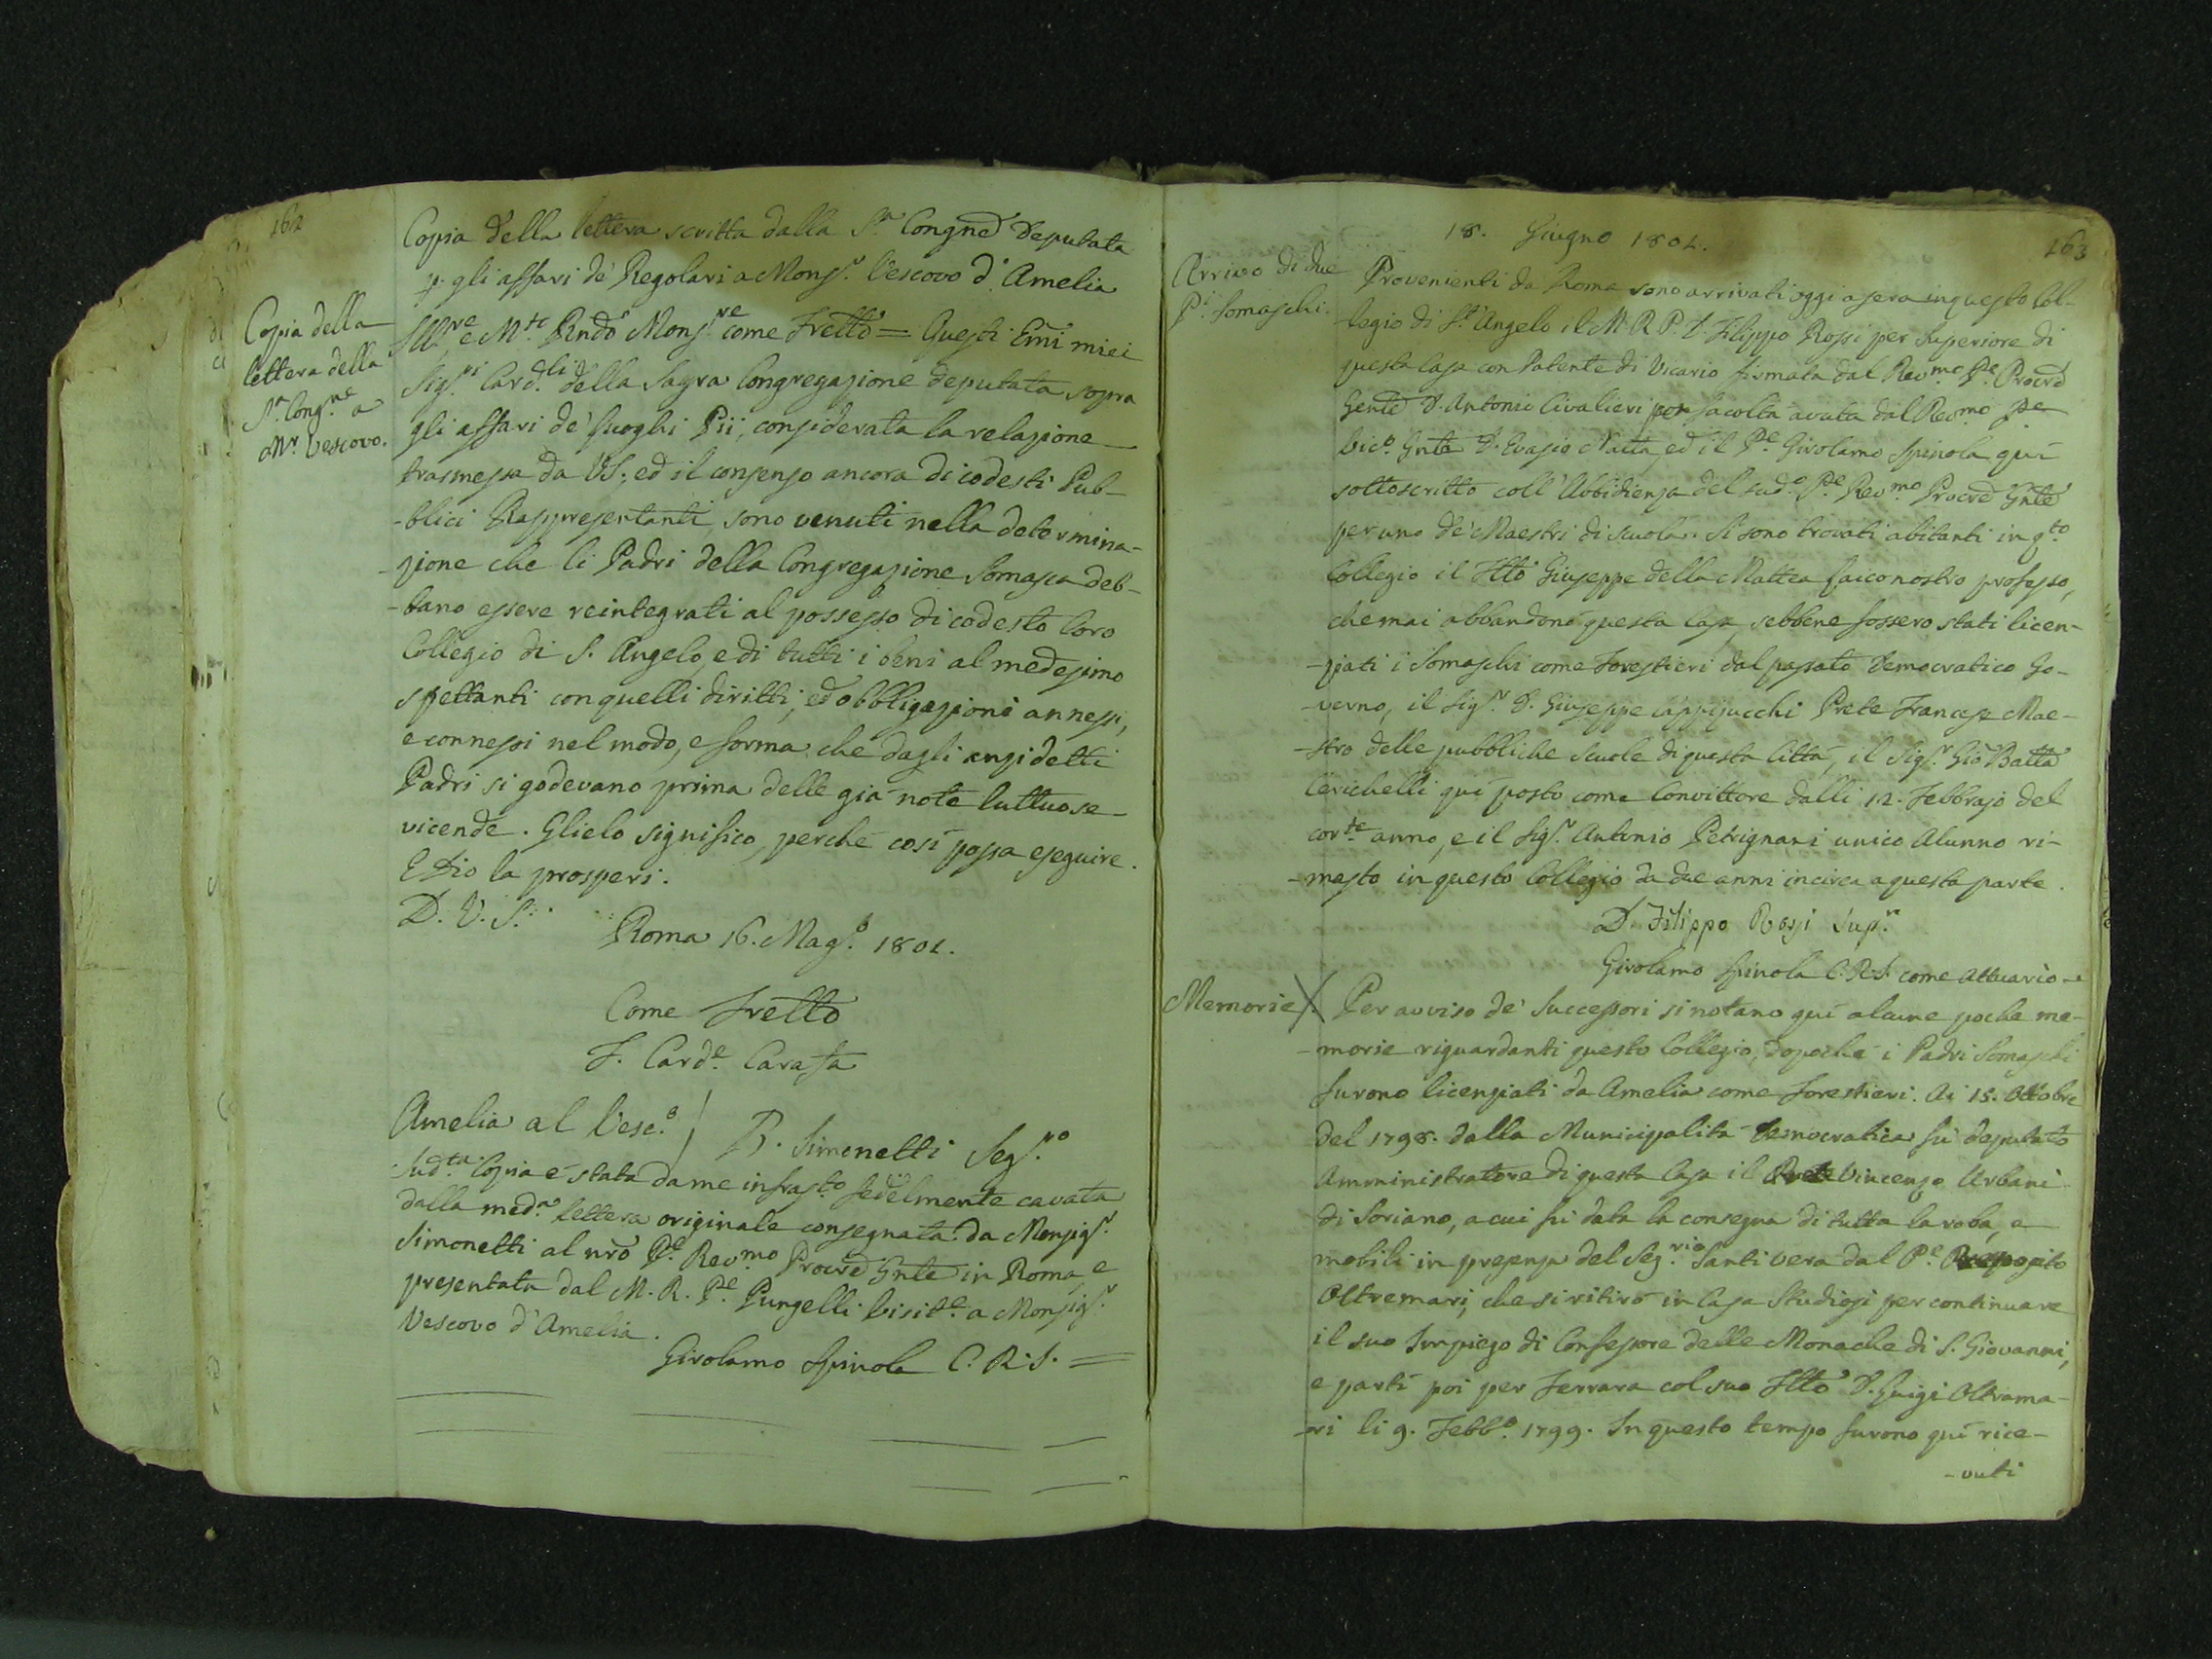 162
Copia della
lettera della
Sa. Congne. a
Mr. Vescovo.
Copia della lettera scritta dalla Sa. Congne deputata
p. gli affari de' Regolari a Monsr. Vescovo d'Amelia
Illre. e Mto. Rndo Monsre. come Frello = Questi Emi miei
Sigri. Cardli. della Sagra Congregazione deputata sopra
gli affari de' Luoghi Pii, considerata la relazione
trasmessa da VS; ed il consenso ancora di codesti Pub-
-blici Rappresentanti sono venuti nella determina-
-zione che li Padri della Congregazione Somasca deb-
-bano essere reintegrati al possesso di codesto loro
Collegio di S. Angelo, e di tutti i beni al medesimo
spettanti con quelli diritti, ed obbligazioni annessi,
e connessi nel modo, e forma che dagli anzidetti
Padri si godevano prima delle già note luttuose
vicende. Glielo significo, perchè così possa eseguire.
E Dio la prosperi.
D. V. S.
Roma 16. Mago. 1801.
Come Frello
F. Carde. Carafa
Amelia al Vesco.
B. Simonetti Segro.
Sudta. Copia è stata da me infrasto. fedelmente cavata
dalla meda. lettera originale consegnata da Monsigr.
Simonetti al nro Pe. Revmo. Procre Gnle in Roma, e
presentata dal M. R. Pe. Pungelli Visite. a Monsigr.
Vescovo d'Amelia.
Girolamo Spinola C. R. S. =
163
18. Giugno 1801.
Arrivo di due
Pi. Somaschi.
Provenienti da Roma sono arrivati oggi a sera in questo Col-
-legio di St. Angelo il M. R. P. D. Filippo Rossi per Superiore di
questa Casa con Patente di Vicario firmata dal Revmo. Pe. Procre
Genle D. Antonio Civalieri per facoltà avuta dal Revmo. Pe.
Vico. Gnle D. Evasio Natta, ed il Pe. Girolamo Spinola quì
sottoscritto coll'Ubbidienza del sudo. Pe. Revmo. Procre Gnle
per uno de' Maestri di Scuola. Si sono trovati abitanti in qto.
Collegio il Fllo Giuseppe della Mattea Laico nostro professo,
che mai abbandonò questa Casa, sebbene fossero stati licen-
-ziati i Somaschi come Forestieri dal passato democratico Go-
-verno, il Sigr. D. Giuseppe Cappijucchi Prete Francese Mae-
-stro delle pubbliche Scuole di questa Città, il Sigr. Gio Batta
Cerichelli quì posto come Convittore dalli 12. Febbrajo del
corte. anno, e il Sigr. Antonio Petrignani unico Alunno ri-
-masto in questo Collegio da due anni incirca a questa parte.
D. Filippo Rossi Supr.
Girolamo Spinola C. R. S. come Attuario
Memorie
Per avviso de' Successori si notano quì alcune poche me-
-morie riguardanti questo Collegio, dopochè i Padri Somaschi
furono licenziati da Amelia come Forestieri. Ai 15. Ottobre
del 1798. dalla Municipalità Democratica fù deputato
Amministratore di questa Casa il Prete Vincenzo Urbani
di Soriano, a cui fù data la consegna di tutta la roba, e
mobili in presenza del Segrio. Santi Vera dal Pe. Preposito
Oltremari, che si ritirò in Casa Studiosi per continuare
il suo Impiego di Confessore delle Monache di S. Giovanni,
e partì poi per Ferrara col suo Fllo D. Luigi Oltrama-
-ri li 9. Febbo. 1799. In questo tempo furono quì rice-
-vuti